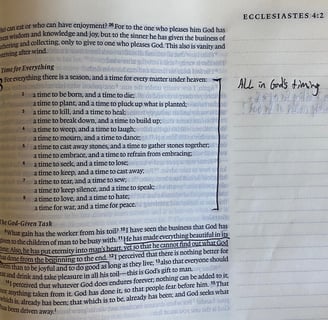 ECCLESIASTES 4:2
can eat or who can have enjoyment? 26For to the one who pleases him God has
wisdom and knowledge and joy, but to the sinner he has given the business of
gathering and collecting, only to give to one who pleases God. This also is vanity and
striving after wind.
Time for Everything
For everything there is a season, and a time for every matter under heaven:
2 a time to be born, and a time to die;
a time to plant, and a time to pluck up what is planted;
3 a time to kill, and a time to heal;
a time to break down, and a time to build up;
4 a time to weep, and a time to laugh;
a time to mourn, and a time to dance;
5 a time to cast away stones, and a time to gather stones together;
a time to embrace, and a time to refrain from embracing;
6 a time to seek, and a time to lose;
a time to keep, and a time to cast away;
7 a time to tear, and a time to sew;
a time to keep silence, and a time to speak;
8 a time to love, and a time to hate;
a time for war, and a time for peace.
The God-Given Task
9What gain has the worker from his toil? 10I have seen the business that God has
to the children of man to be busy with. 11He has made everything beautiful in its
Also, he has put eternity into man's heart, yet so that he cannot find out what God
has done from the beginning to the end. 12I perceived that there is nothing better for
them than to be joyful and to do good as long as they live; 13also that everyone should
eat and drink and take pleasure in all his toil—this is God's gift to man.
14I perceived that whatever God does endures forever; nothing can be added to it,
nor anything taken from it. God has done it, so that people fear before him. 15That
which is, already has been; that which is to be, already has been; and God seeks what
has been driven away.
ALL in God's timing